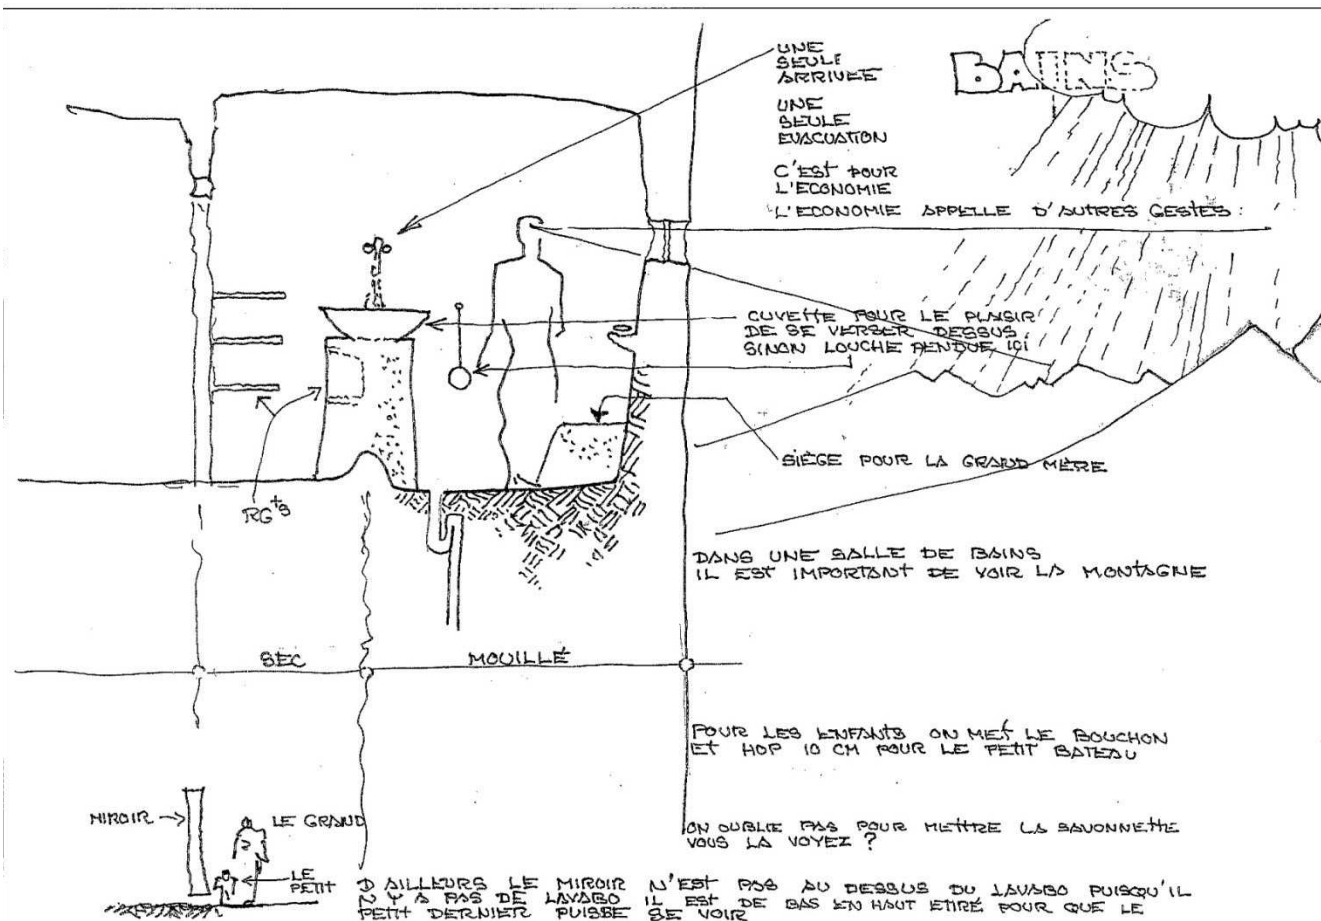 BAINS
UNE
SEULE
ARRIVEE
UNE
SEULE
EVACUATION
C'EST POUR
L'ECONOMIE
L'ECONOMIE APPELLE D'AUTRES GESTES :
CUVETTE POUR LE PLAISIR
DE SE VERSER DESSUS
SINON LOUCHE PENDUE ICI
SIÈGE POUR LA GRAND MÈRE
RGTS
DANS UNE SALLE DE BAINS
IL EST IMPORTANT DE VOIR LA MONTAGNE
SEC
MOUILLÉ
POUR LES ENFANTS ON MET LE BOUCHON
ET HOP 10 CM POUR LE PETIT BATEAU
MIROIR
LE GRAND
LE
PETIT
ON OUBLIE PAS POUR METTRE LA SAVONNETTE
VOUS LA VOYEZ ?
D AILLEURS LE MIROIR N'EST PAS AU DESSUS DU LAVABO PUISQU'IL
N Y A PAS DE LAVABO IL EST DE BAS EN HAUT ETIRÉ POUR QUE LE
PETIT DERNIER PUISSE SE VOIR